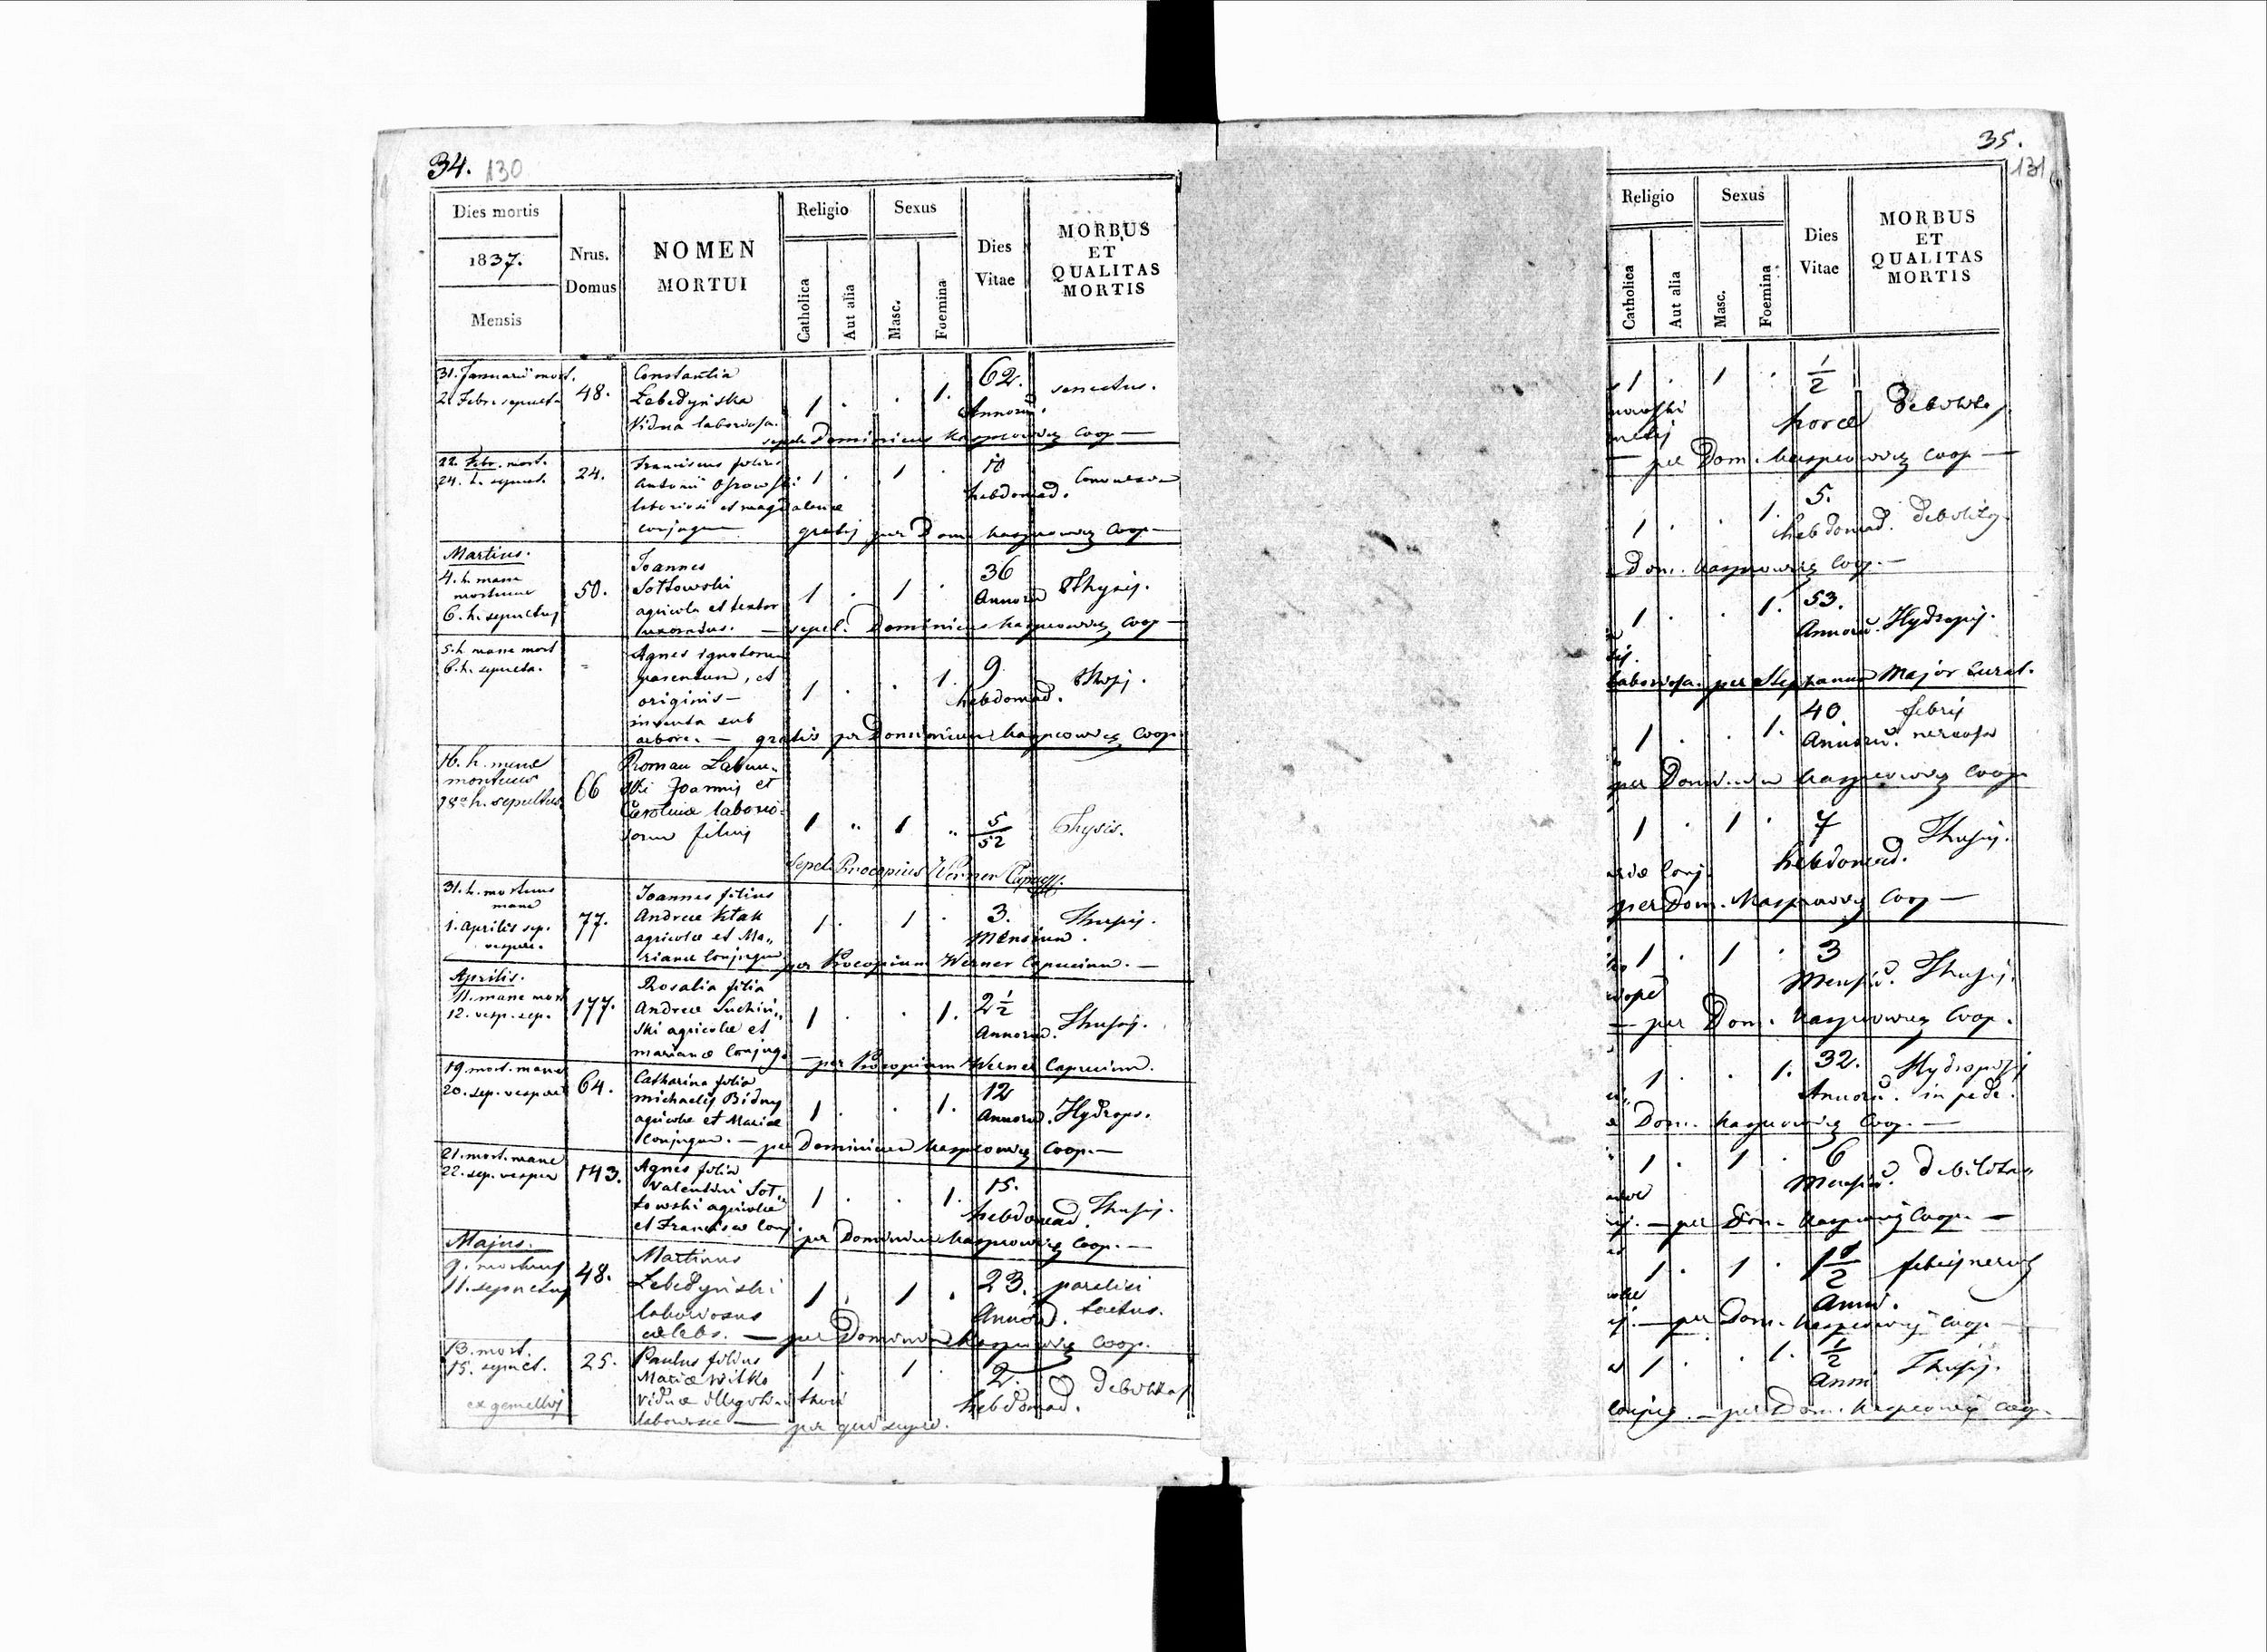 34. 130
Dies mortis
1837.
Mensis
Nrus.
Domus
NOMEN
MORTUI
Religio
Catholica
Aut alia
Sexus
Masc.
Foemina
Dies
Vitae
MORBUS
ET
QUALITAS
MORTIS
31. Januarii mort.
2. Febr. sepulta
48.
Constantia
Lebedyńska
Vidua laboriosa.
1 . . 1.
62.
Annorū.
senectus.
sepel. Dominicus Kasprowicz Coop —
22. Febr. mort.
24. h. sepult.
24.
Franciscus filius
Antonii
laboriosi et Magdalenae
conjugum
1 . 1 .
10
hebdomad.
gratis per Dom. Kasprowicz Coop —
Martius.
4. h. mane
mortuus
6. h. sepultus
50.
Joannes
Sottowski
agricola et textor
uxoratus.
1 . 1 .
36
Annorū
Thysis.
— sepel. Dominicus Kasprowicz Coop —
5. h. mane mort
6. h. sepulta.
Agnes ignotorum
parentum, et
originis —
inventa sub
arbore. —
1 . . 1.
9.
hebdomad.
gratis per Dominicum Kasprowicz Coop
16. h. mane
mortuus
18. h. sepultus
66
Roman
ski Joannis et
Carolinae laborio-
sorum filius
1 " 1 "
5/52
Thysis.
Sepel. Procopius Werner Capuc.
31. h. mortuus
mane
1. Aprilis sep.
vespere.
77.
Joannes filius
Andreae Ktak
agricolae et Ma„
rianae Conjugum
1 . 1 .
3.
Mensium.
per Procopium Werner Capucinum. —
Aprilis.
11. mane mort
12. vesp. sep.
177.
Rosalia filia
Andreae Suchin„
ski agricolae et
Marianae Conjug.
1 . . 1.
2½
Annorū.
— per Procopium Werner Capucinum.
19. mort. mane
20. sep. vespere
64.
Catharina filia
Michaelis Bidny
agricolae et Mariae
Conjugum. —
1 . . 1.
12
Annorū.
Hydrops.
per Dominicum Kasprowicz Coop. —
21. mort. mane
22. sep. vespere
143.
Agnes filia
Valentini Sot„
towski agricolae
et Franciscae Conj.
1 . . 1.
15.
hebdomad.
per Dominicum Kasprowicz Coop. —
Majus.
9. mortuus
11. sepultus
48.
Martinus
Lebedyński
laboriosus
caelebs. —
1 . 1 .
23.
Annorū.
paralisi
tactus.
per Dominicum Kasprowicz Coop.
13. mort.
15. sepult.
ex gemellis
25.
Paulus filius
Mariae Witko
Viduae illegitimi thori
laboriosae —
1 . 1 .
2.
hebdomad.
Debilitas
per quem supra.
35.
131
Religio
Catholica
Aut alia
Sexus
Masc.
Foemina
Dies
Vitae
MORBUS
ET
QUALITAS
MORTIS
1 . 1 .
½
horae
Debilitas
— per Dom. Kasprowicz Coop —
1 . . 1.
5.
hebdomad.
debilitas
— Dom. Kasprowicz Coop. —
1 . . 1.
53.
Annorū.
Hydropis.
laboriosa. per Stephanum Major Curat.
1 . . 1.
40.
Annorū.
febris
nervosa
per Dominicum Kasprowicz Coop.
1 . 1 .
7
hebdomad.
per Dom. Kasprowicz Coop —
1 . 1 .
3
Mensiū.
— per Dom. Kasprowicz Coop.
1 . . 1.
32.
Annorū.
Hydropisis
in pede.
Dom. Kasprowicz Coop. —
1 . 1 .
6
Mensiū.
debilitas
— per Dom. Kasprowicz Coop. —
1 . 1 .
1½
Anni.
— per Dom. Kasprowicz Coop. —
1 . . 1.
½
Anni
conjug. — per Dom. Kasprowicz Coop.